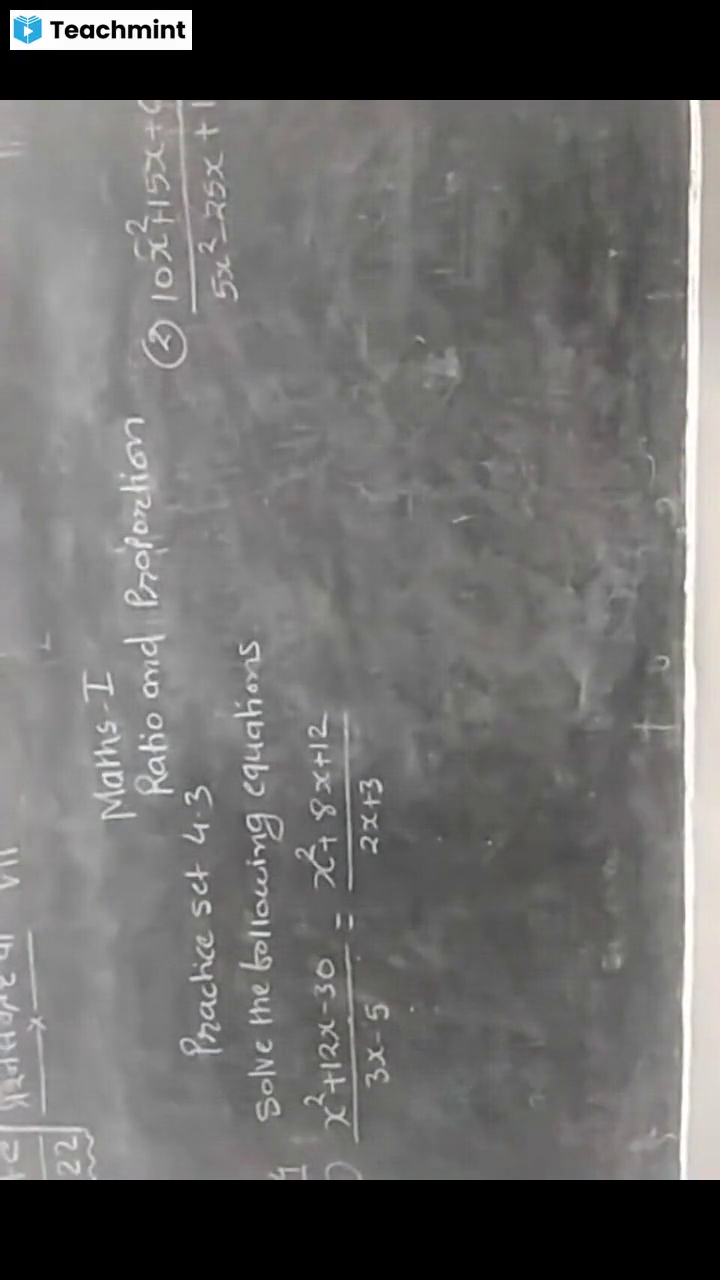 Teachmint
22
Maths-I
Ratio and Proportion
Practice set 4.3
Solve the following equations
x²+12x-30 = x²+8x+12
3x-5 2x+3
② 10x²+15x+
5x²-25x+1